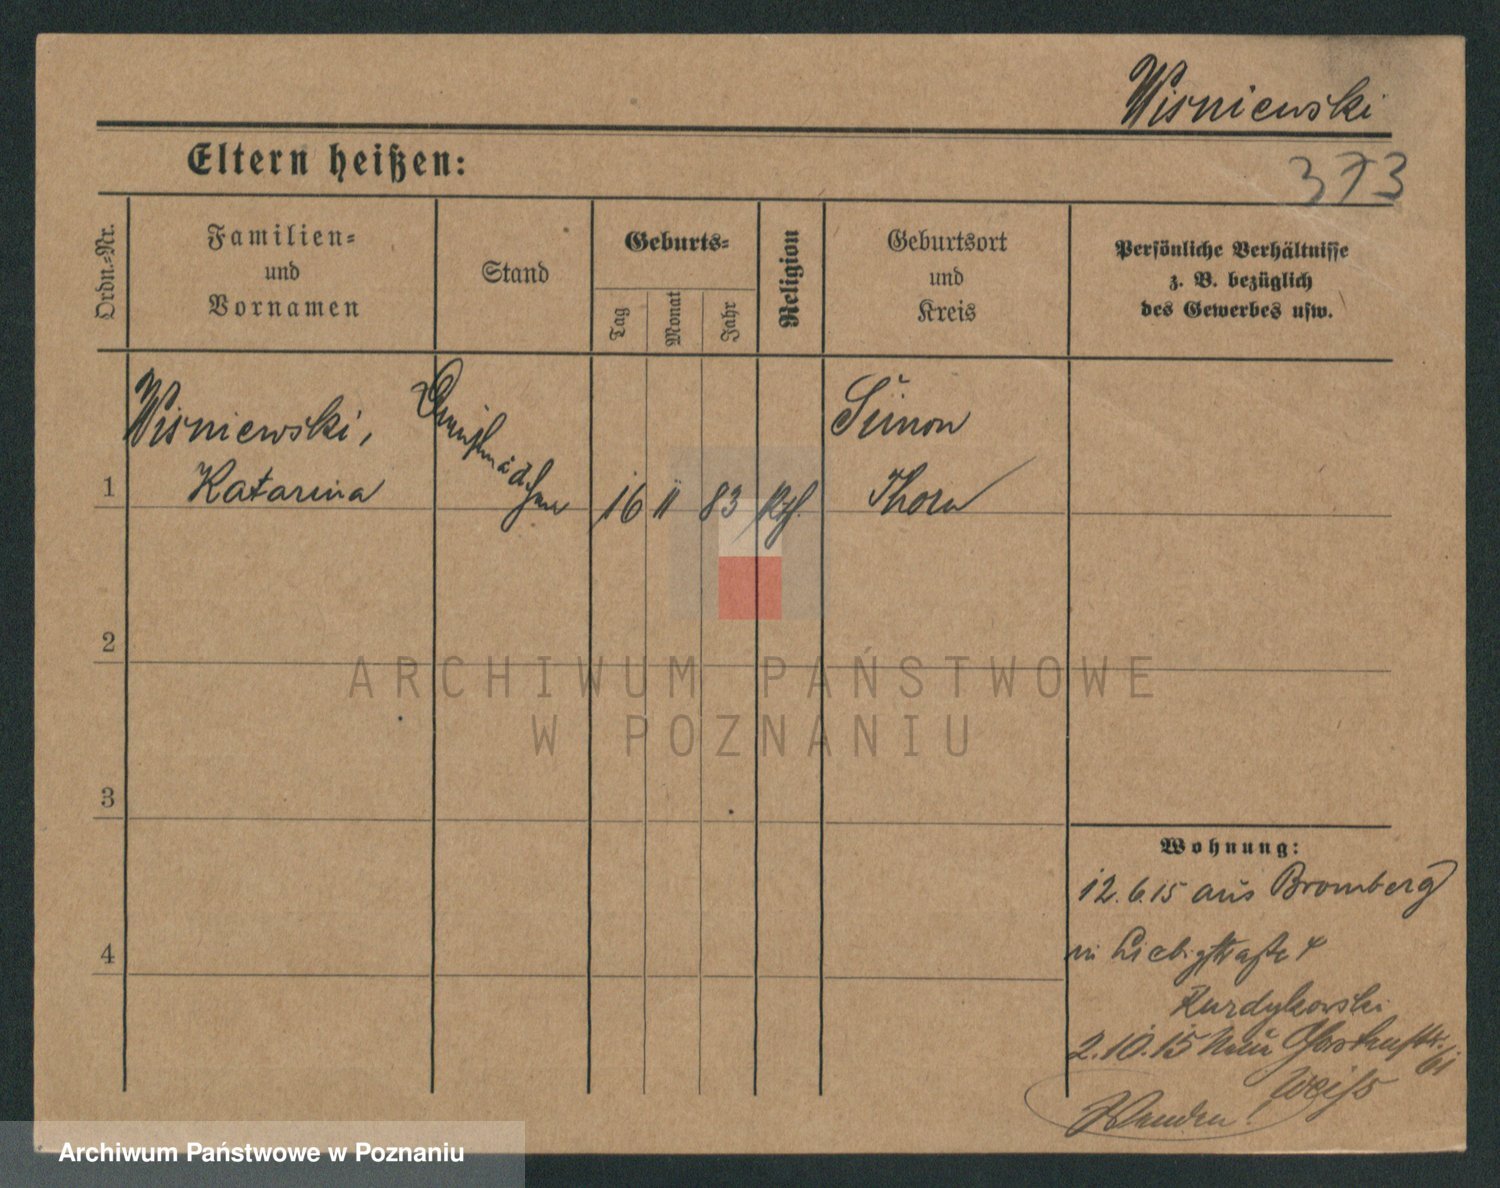 Wisniewski
Eltern heißen:
373
Ordn.-Nr.
Familien-
und
Vornamen
Stand
Geburts-
Tag
Monat
Jahr
Religion
Geburtsort
und
Kreis
Persönliche Verhältnisse
z. B. bezüglich
des Gewerbes usw.
Wisniewski,
Katarina
Dienstmädchen
1
16 11 83 kth.
Simon
Thorn
2
3
4
Wohnung:
12.6.15 aus Bromberg
in Liebigstraße 4
Kurdykowski
2.10.15 Neue Gartenstr.
61
Weiß
Wenden!
ARCHIWUM PAŃSTWOWE
W POZNANIU
Archiwum Państwowe w Poznaniu